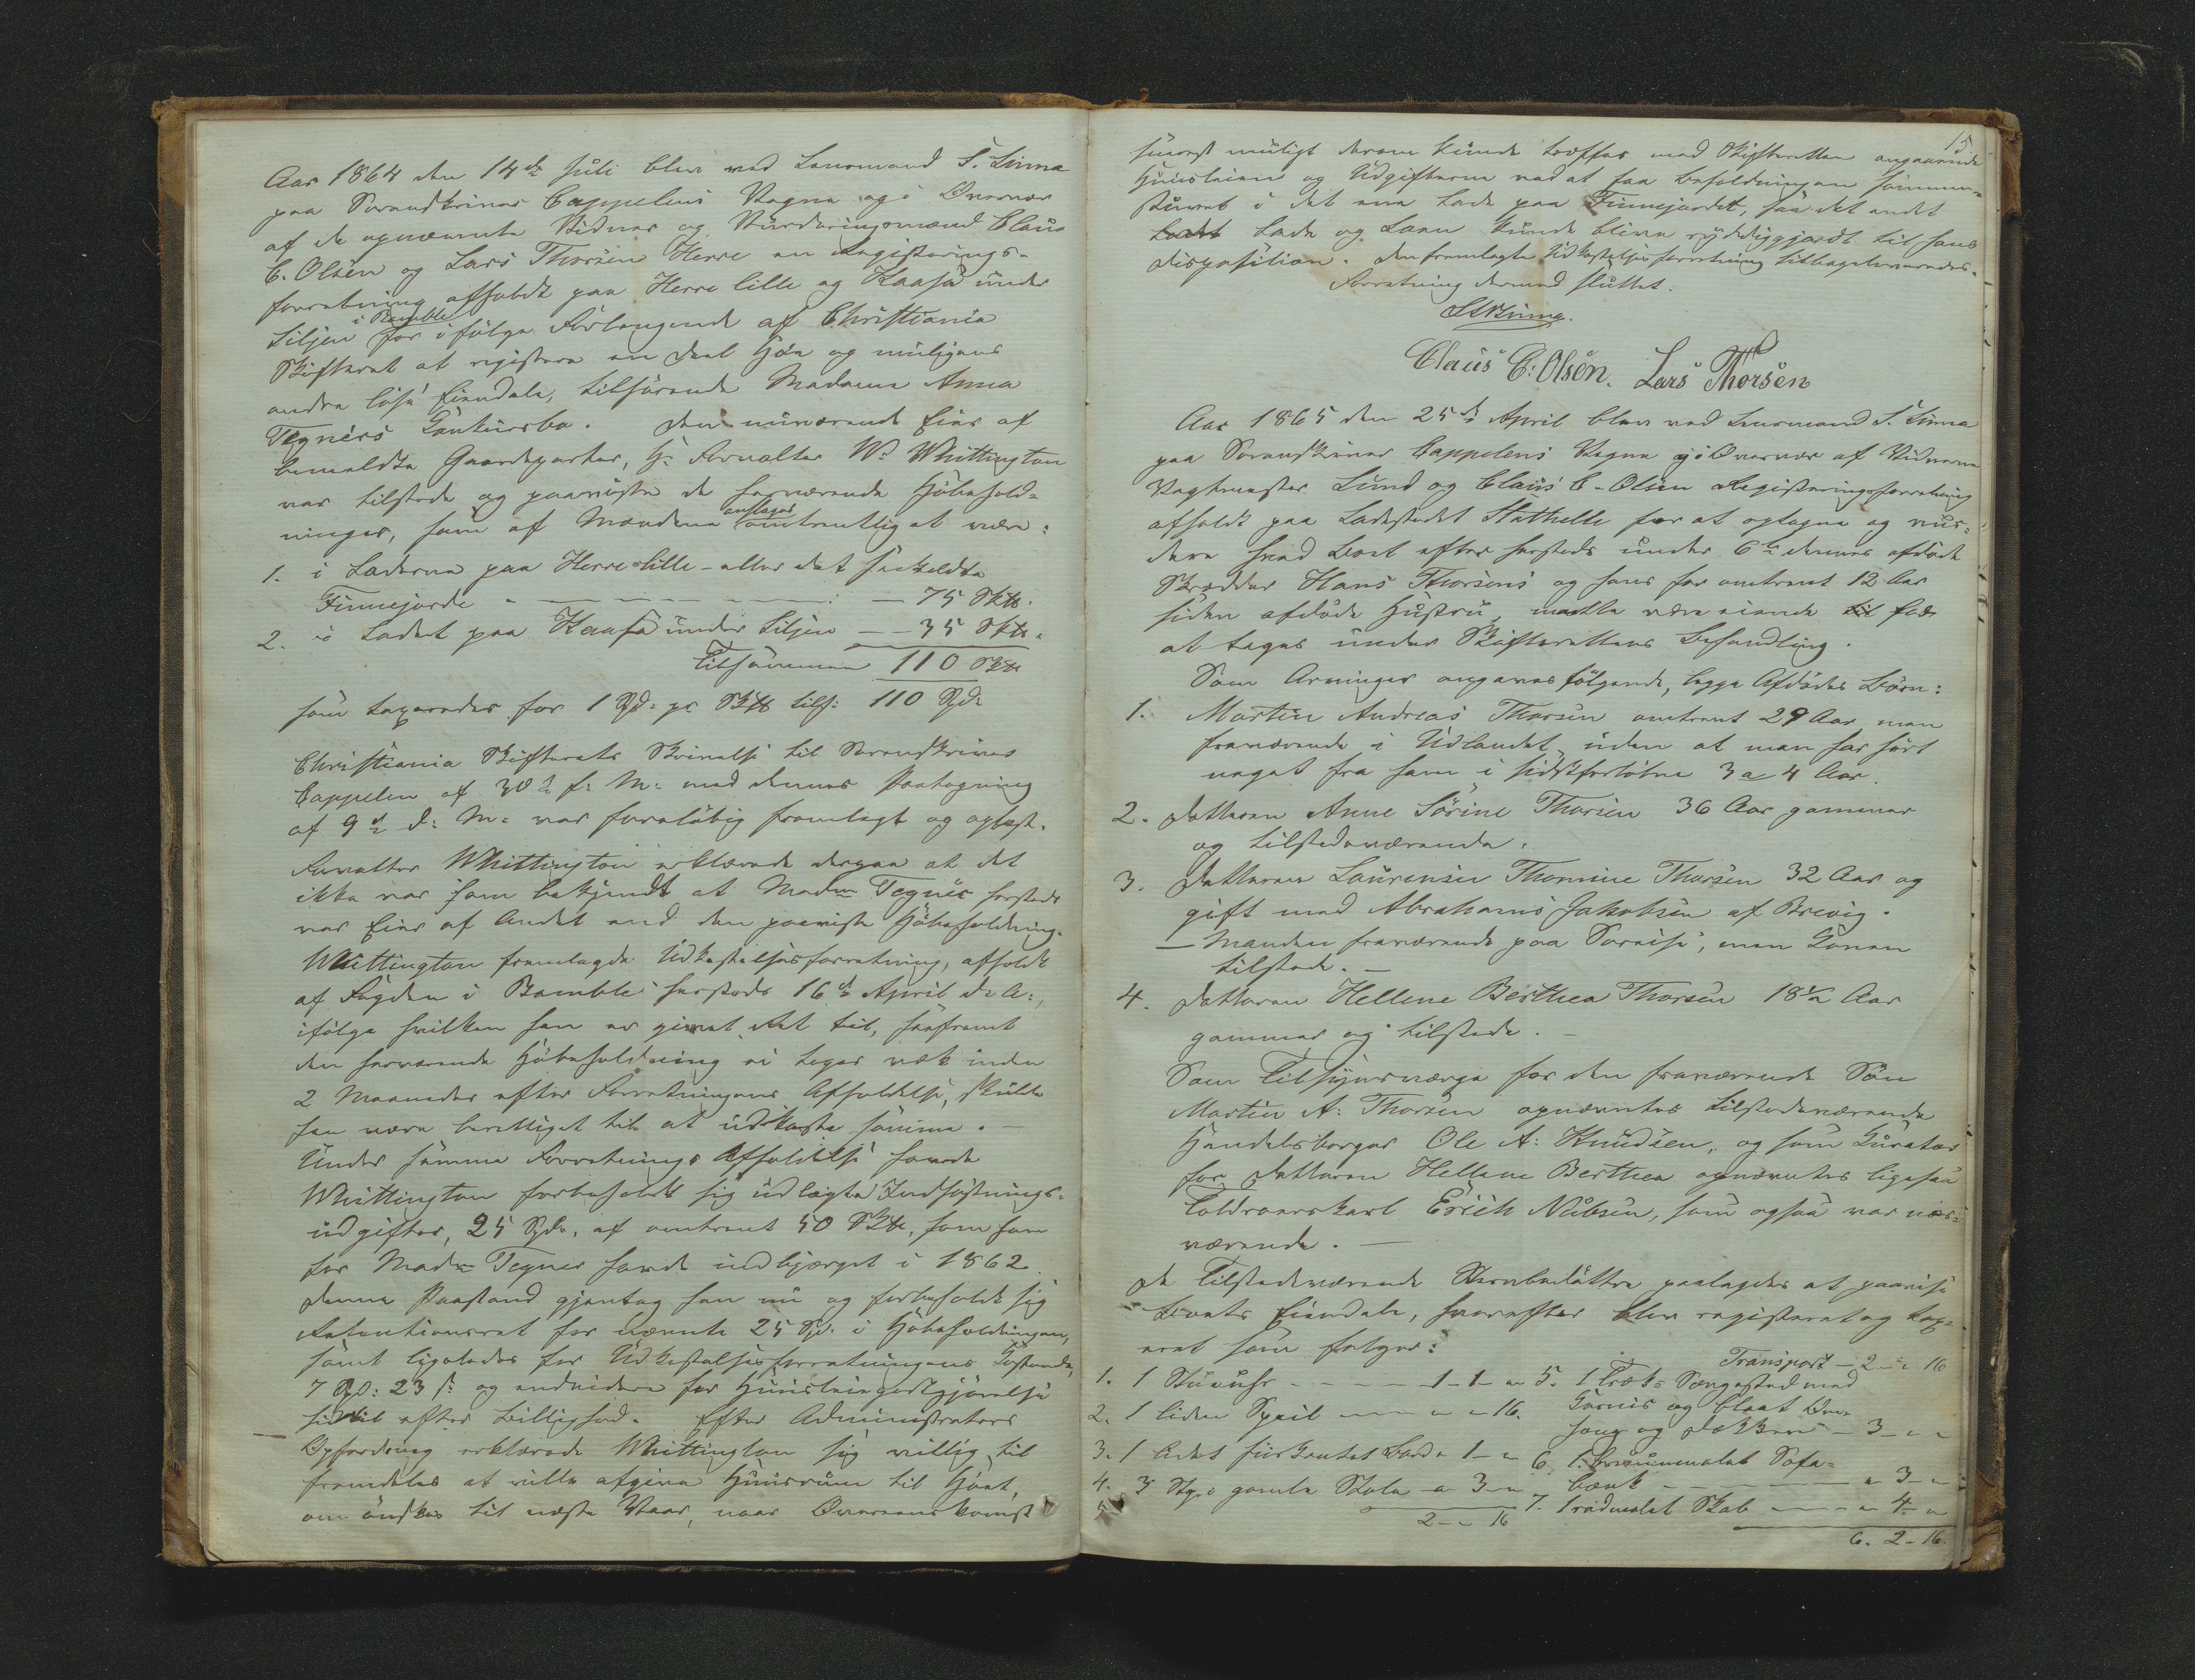 Aar 1864 den 14de Juli blev ved Lensmand S. Linna
paa Sorenskriver Cappelens Vegne og i Overvær
af de opnævnte Vidner og Vurderingsmænd Claus
C. Olsen og Lars Thorsen Herre en Registrerings-
forretning afholdt paa Herre lille og Kaasa under
i Bamble
Siljen for ifølge Forlangende af Christiania
Skifteret at registrere en Deel Høe og muligens
andre løse Eiendele, tilhørende Madame Anna
Tegnérs Concursbo. Den nuværende Eier af
bemeldte Gaardeparter, Hr. Forvalter W. Whittington
var tilstede og paaviste de herværende Høbehold-
antages
ninger, som af Mændene omtrentlig at være:
1. i Laderne paa Herre lille - eller det saakaldte
Finnejorde - 75 Sk℔.
2. i Ladet paa Kaasa under Siljen - 35 Sk℔.
Tilsammen 110 Sk℔
som taxeredes for 1 Spd. pr Sk℔ tils: 110 Spd.
Christiania Skifterets Skrivelse til Sorenskriver
Cappelen af 30te f: M: med dennes Paategning
af 9de d: M: var foreløbig fremlagt og oplæst.
Forvalter Whittington erklærede derpaa at det
ikke var ham bekjendt at Madm Tegnér hersteds
var Eier af Andet end den paaviste Høbeholdning.
Whittington fremlagde Udkastelsesforretning, afholdt
af Fogden i Bamble hersteds 16de April d: A:,
ifølge hvilken han er givet Ret til, saafremt
den herværende Høbeholdning ei toges væk inden
2 Maaneder efter Forretningens Afholdelse, skulde
han være berettiget til at udkaste samme. -
Under samme Forretnings Afholdelse havde
Whittington forbeholdt sig udlagte Indhøstnings-
udgifter, 25 Spd. af omtrent 50 Sk℔, som han
for Madm Tegner havde indbjerget i 1862.
Denne Paastand gjentog han nu og forbeholdt sig
Retentionsret for nævnte 25 Spd. i Høbeholdningen,
samt ligeledes for Udkastelsesforretningens Kostende,
7 Spd: 23 s. og endvidere for Huusleiegodtgjørelse
hidtil efter Billighed. Efter Administrators
Opfordring erklærede Whittington sig villig til
fremdeles at ville afgive Huusrum til Høet,
om ønskes til næste Vaar, naar Overeenskomst
15
snarest muligt derom kunde træffes med Skifteretten angaaende
Huusleien og Udgifterne ved at faa Beholdningen sammen-
stuvet i det ene Lade paa Finnejordet, saa det andet
Lade og Laan kunde blive ryddiggjordt til hans
Disposition. Den fremlagte Udkastelsesforretning tilbageleveredes.
Forretning dermed sluttet.
SLinna.
Claus C: Olsen. Lars Thorsen
Aar 1865 den 25de April blev ved Lensmand S. Linna
paa Sorenskriver Cappelens Vegne og i Overvær af Vidnerne
Vagtmester Lund og Claus C. Olsen Registreringsforretning
afholdt paa Ladestedet Stathelle for at optegne og vur-
dere hvad Boet efter hersteds under 6te dennes afdøde
Skrædder Hans Thorsens og hans for omtrent 12 Aar
siden afdøde Hustru, maatte være eiende for
at tages under Skifterettens Behandling.
Som Arvinger angaves følgende, begge Afdødes Børn:
1. Martin Andreas Thorsen omtrent 29 Aar men
fraværende i Udlandet, uden at man har hørt
noget fra ham i sidstforløbne 3 a 4 Aar.
2. Datteren Anne Sørine Thorsen 36 Aar gammel
og tilstedeværende.
3. Datteren Laurensen Thomine Thorsen 32 Aar og
gift med Abrahams Jakobsen af Brevig.
- Manden fraværende paa Søreise, men Konen
tilstede. -
4. Datteren Hellene Berthea Thorsen 18½ Aar
gammel og tilstede. -
Som Tilsynsværge for den fraværende Søn
Martin A: Thorsen opnævntes tilstedeværende
Handelsborger Ole A: Knudsen, og som Curator
for Datteren Hellene Berthea opnævntes ligesaa
Toldroerskarl Erich Nilsen, som ogsaa var nær-
værende. -
De tilstedeværende Sterbedøttre paalagdes at paavise
Boets Eiendele, hvorefter blev registreret og tax-
eret som følger:
1. 1 Stueuhr - 1 - 1 - "
2. 1 liden Speil - " - " - 16.
3. 1 firkantet Bord " 1 - "
4. 3 Stk. gamle Stole - " 3 - "
2 - " 16
Transport - 2 - " 16
5. 1 Træk-Sengested med
Gavnis og blaat Om-
hæng og Dækken - 3 - " "
6. 1 bruunmalet Sofa-
bænk - " 3 - "
7. 1 rødmalet Skab - " 4 - "
6. 2 - 16.